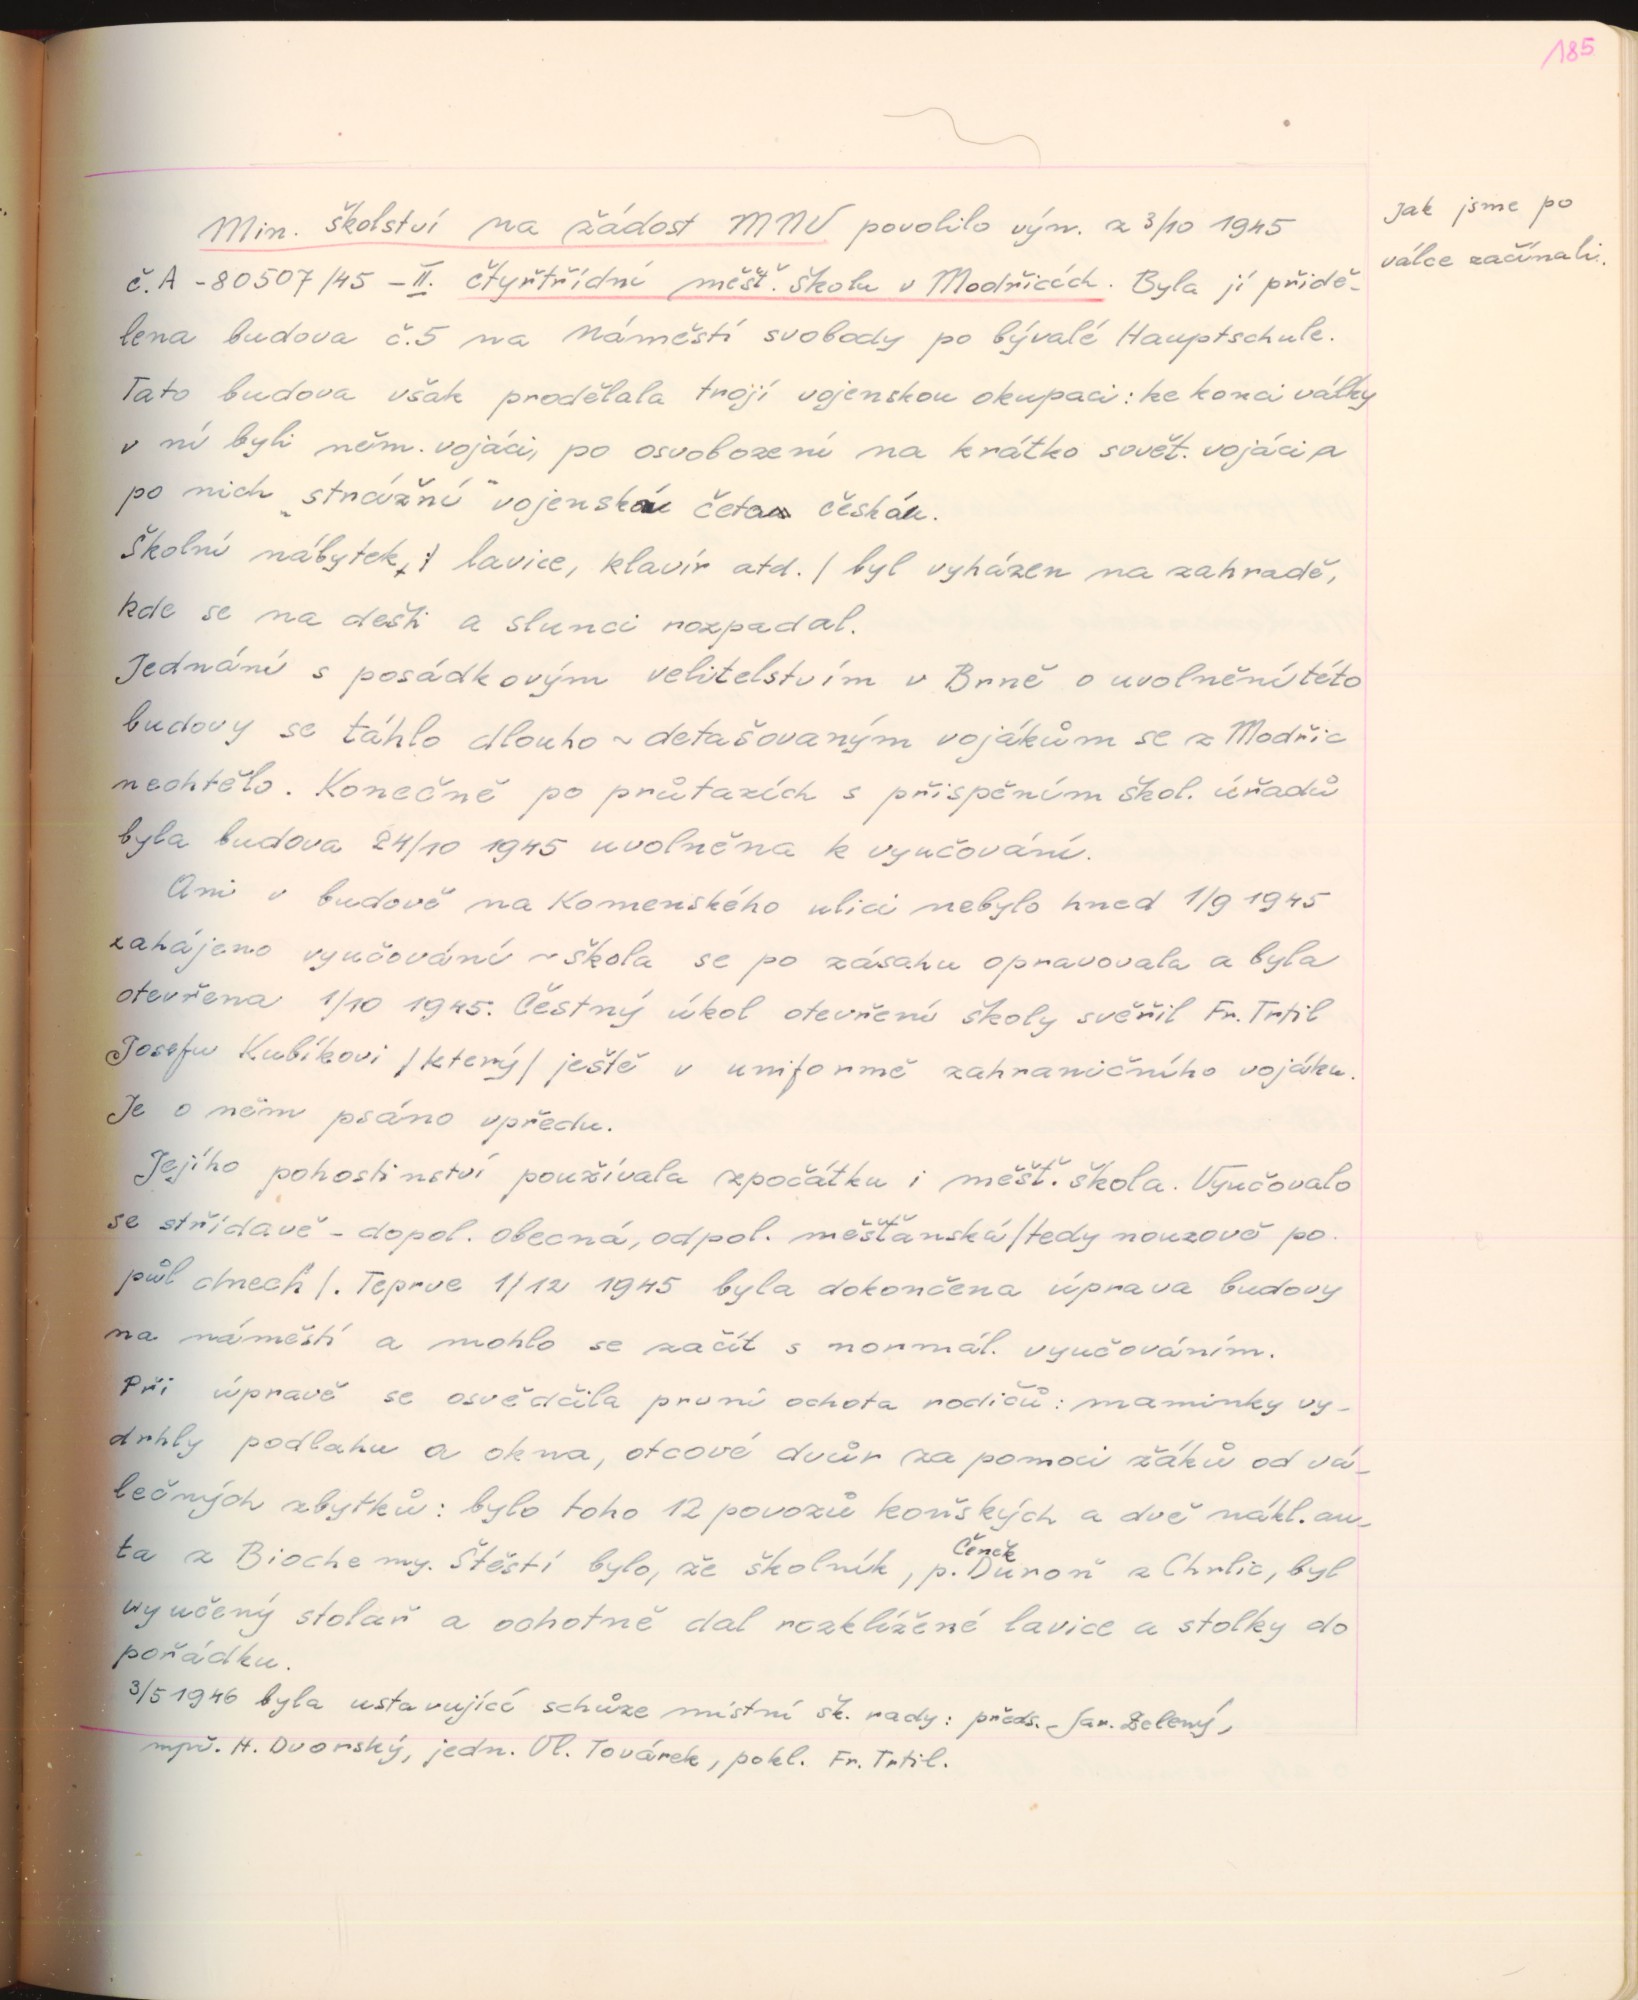 185
Jak jsme po
válce začínali.
Min. školství na žádost MNV povolilo výn. z 3/10 1945
č. A - 80507/45 - II. čtyřtřídní měšť. školu v Modřicích. Byla jí přidě-
lena budova č. 5 na Náměstí svobody po bývalé Hauptschule.
Tato budova však prodělala trojí vojenskou okupaci: ke konci války
v ní byli něm. vojáci, po osvobození na krátko sovět. vojáci a
po nich „strážní" vojenská četa česká.
Školní nábytek, / lavice, klavír atd. / byl vyházen na zahradě,
kde se na dešti a slunci rozpadal.
Jednání s posádkovým velitelstvím v Brně o uvolnění této
budovy se táhlo dlouho ~ detašovaným vojákům se z Modřic
nechtělo. Konečně po průtazích s přispěním škol. úřadů
byla budova 24/10 1945 uvolněna k vyučování.
Ani v budově na Komenského ulici nebylo hned 1/9 1945
zahájeno vyučování ~ škola se po zásahu opravovala a byla
otevřena 1/10 1945. Čestný úkol otevření školy svěřil Fr. Trtil
Josefu Kubíkovi /který/ ještě v uniformě zahraničního vojáku.
Je o něm psáno vpředu.
Jejího pohostinství používala zpočátku i měšť. škola. Vyučovalo
se střídavě - dopol. obecná, odpol. měšťanská /tedy nouzově po
půl dnech/. Teprve 1/12 1945 byla dokončena úprava budovy
na náměstí a mohlo se začít s normál. vyučováním.
Při úpravě se osvědčila první ochota rodičů: maminky vy-
drhly podlahu a okna, otcové dvůr za pomoci žáků od vá-
lečných zbytků: bylo toho 12 povozů koňských a dvě nákl. au-
ta z Biochemy. Štěstí bylo, že školník, p. Čeněk Ďuroň z Chrlic, byl
vyučený stolař a ochotně dal rozklížené lavice a stolky do
pořádku.
3/5 1946 byla ustavující schůze místní šk. rady: předs. Jar. Zelený,
mpř. H. Dvorský, jedn. Vl. Továrek, pokl. Fr. Trtil.